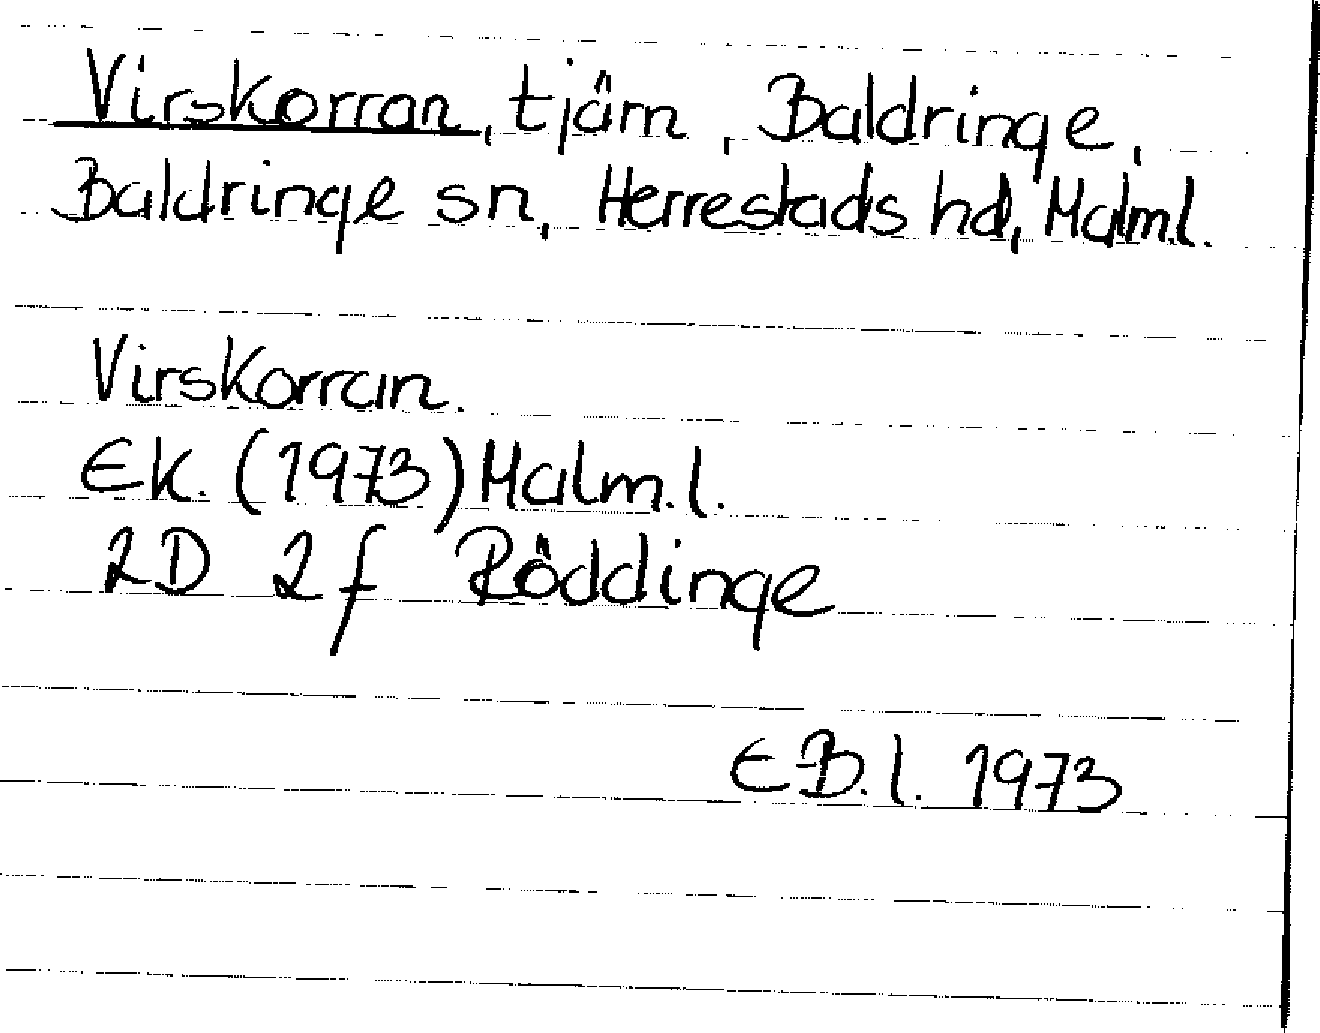 Virskorran, tjärn, Baldringe,
Baldringe sn, Herrestads hd, Malm.l.
Virskorran.
Ek. (1973) Malm.l.
2D 2f Röddinge
EB.l. 1973